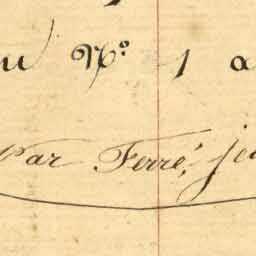 au N.º 1 a
Par Ferré, je